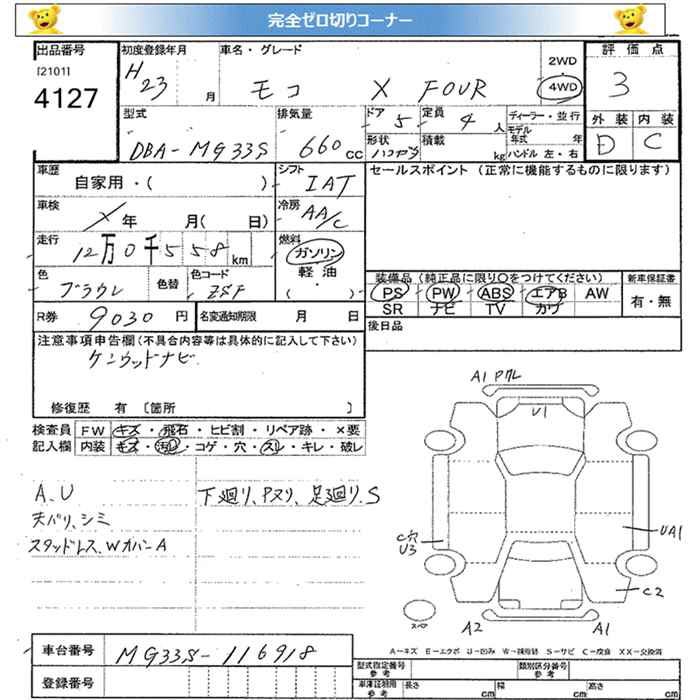 完全ゼロ切りコーナー
出品番号 初度登録年月 車名・グレード 評価点
[2101] H23 月 モコ X FOUR 2WD 4WD 3
4127
外装 内装
D C
型式 排気量 ドア 定員 ディーラー・並行
DBA-MG33S 660 CC 5 4 人 モデル年式 年
形状 積載 kg ハンドル 左・右
車歴 シフト セールスポイント(正常に機能するものに限ります)
自家用・( ) IAT
車検 冷房
X 年 月( 日) AA/C
走行 燃料
12万0千558km ガソリン
軽油
( )
色 色替 色コード
ブラウン ZSF
装備品(純正品に限り〇をつけてください) 新車保証書
PS PW ABS エアB AW 有・無
SR ナビ TV カワ
R券 9030 円 名変通知期限 月 日
後日品
注意事項申告欄(不具合内容等は具体的に記入して下さい)
ケンウッドナビ
修復歴 有 [箇所 ]
検査員 FW キズ・飛石・ヒビ割・リペア跡・×要
記入欄 内装 キズ・汚れ・コゲ・穴・スレ・キレ・破レ
A、U 下廻り、Pヌリ、足廻り、S
天バリ、シミ
スタッドレス、WカバーA
A1 Pクレ
U1
C穴
U3
UA1
C2
スペア
A2 A1
A-キズ E-エクボ U-凹み W-補修跡 S-サビ C-腐食 XX-交換済
車台番号 MG33S-116918
登録番号
型式指定番号 参考 類別区分番号 参考
車庫証明用 参考 長さ cm 幅 cm 高さ cm